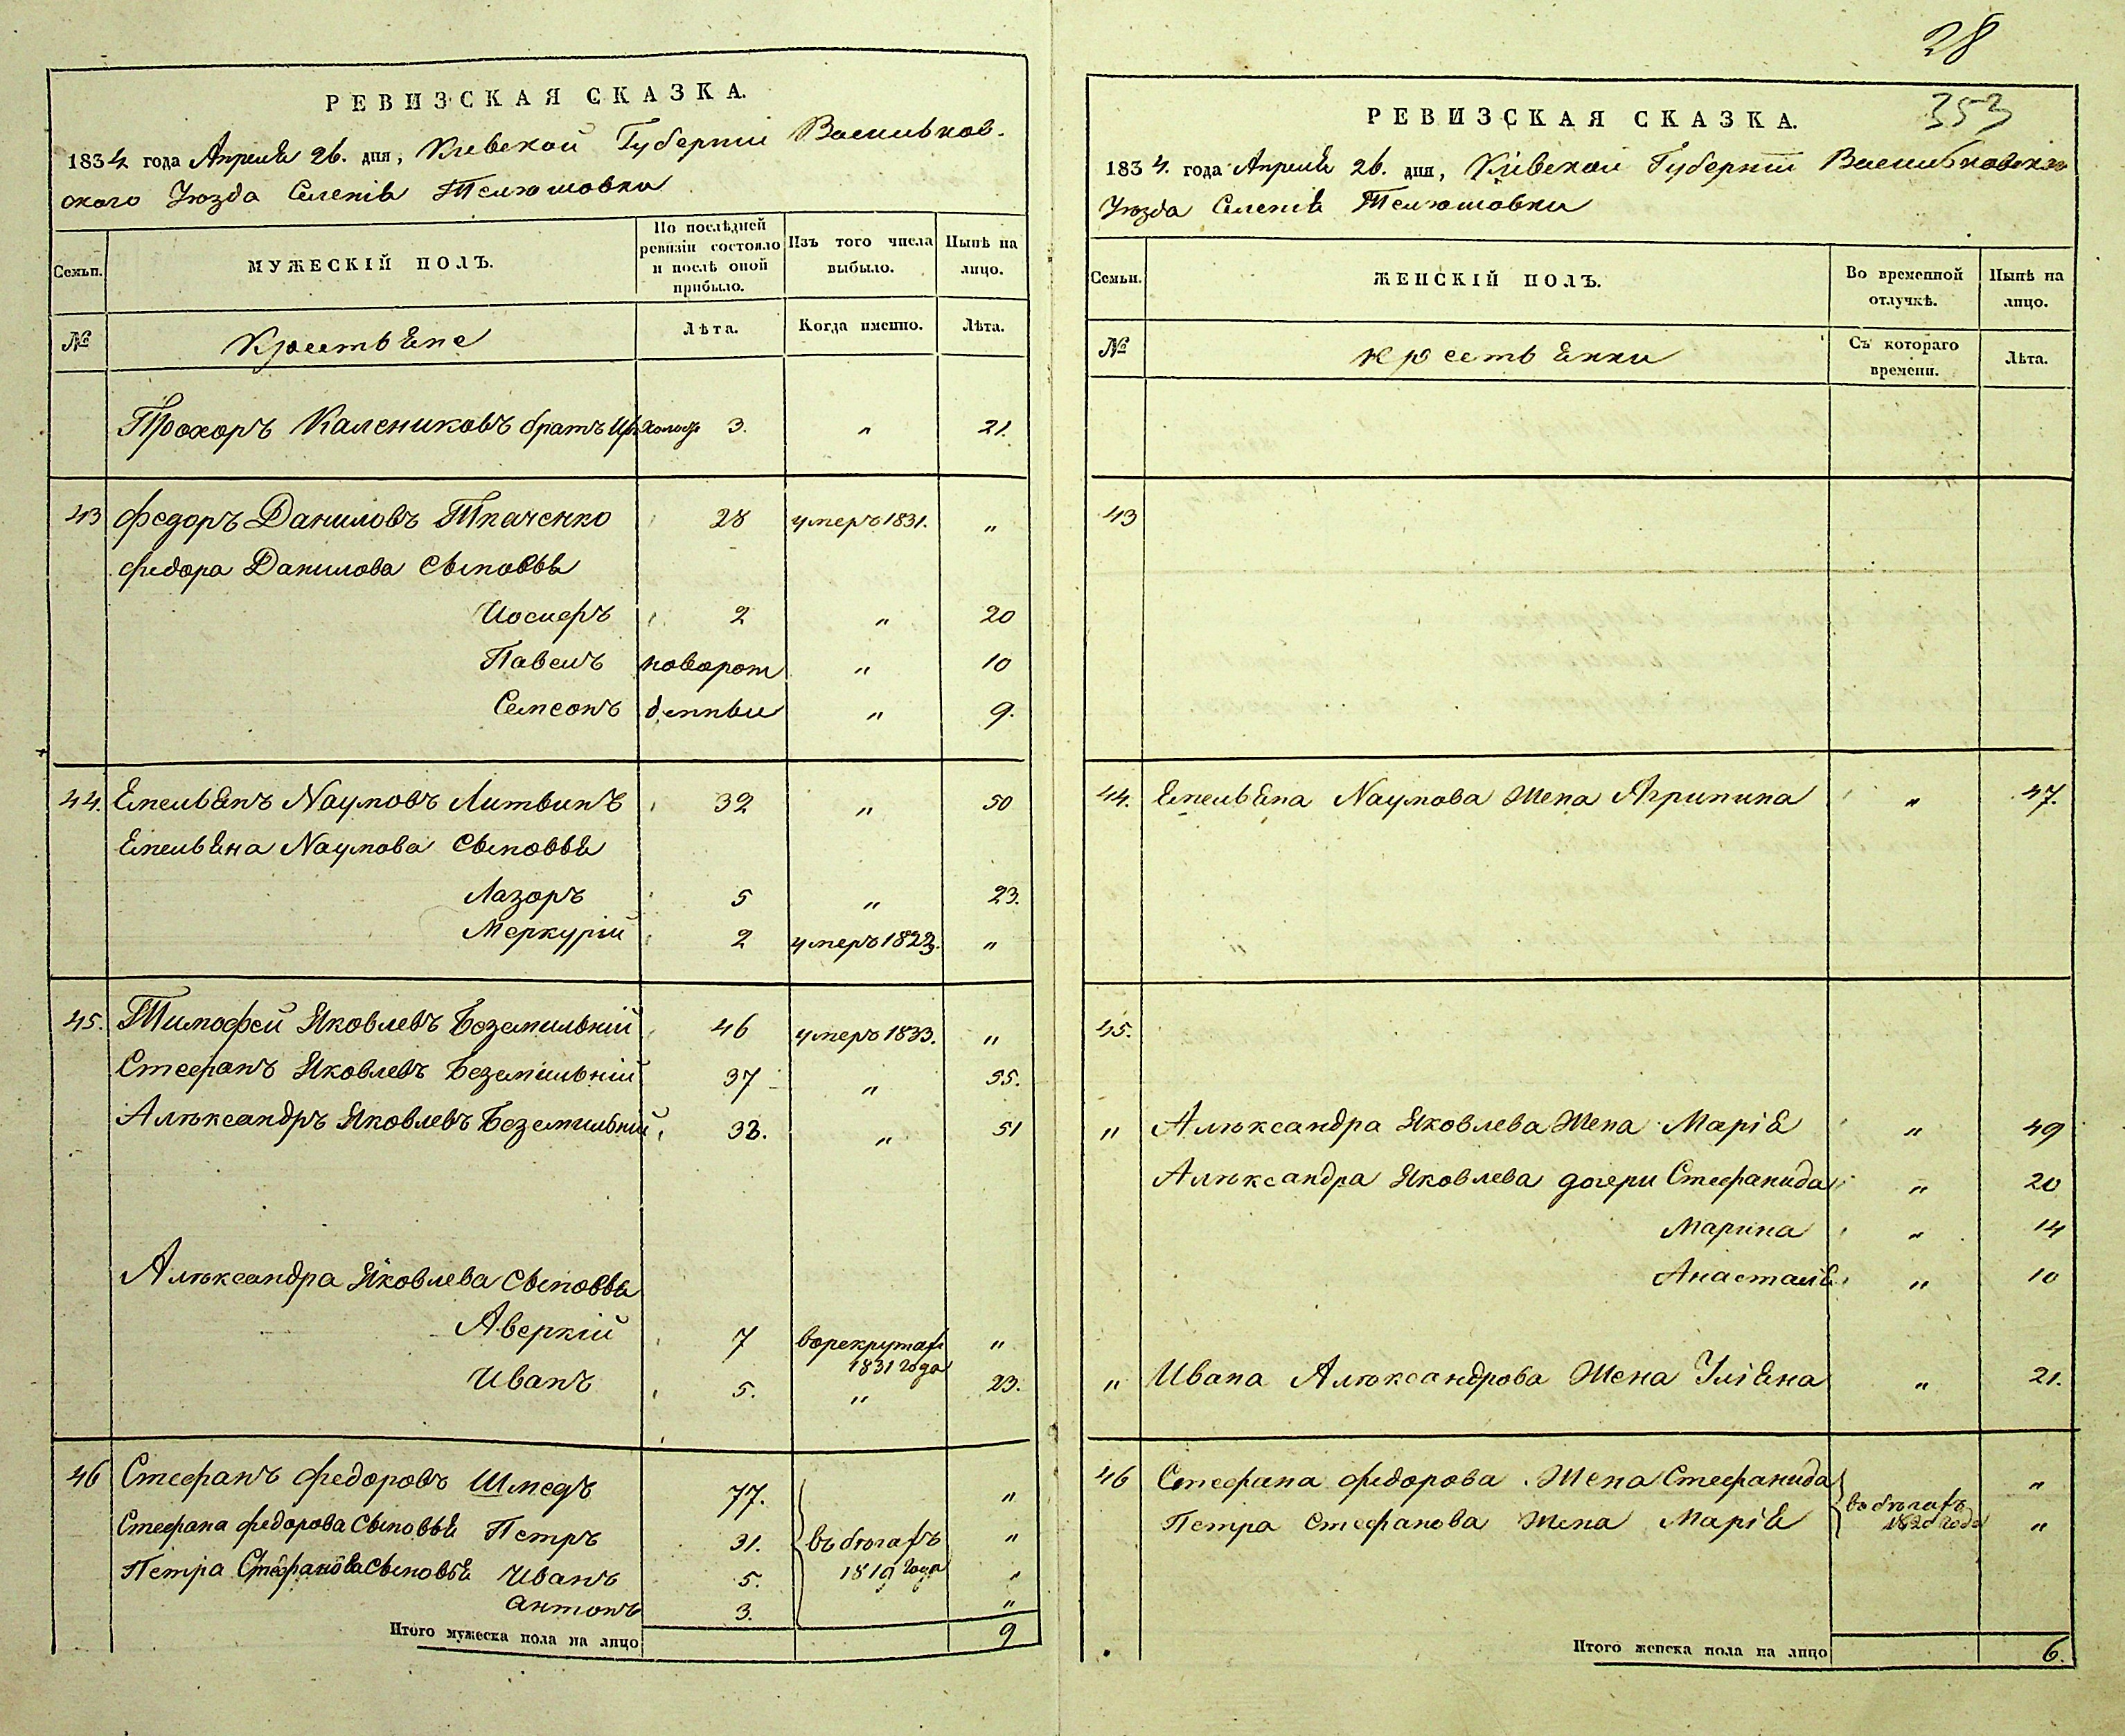 28
РЕВИЗСКАЯ СКАЗКА.
1834 года Апреля 26. дня, Кіевской Губерніи Васильков-
ского Уюзда Селенія Телюшовки
Семьи.
МУЖЕСКІЙ ПОЛЪ.
По послѣдней ревизіи состояло и послѣ оной прибыло.
Изъ того числа выбыло.
Нынѣ на лицо.
№
Крестьяне
Лѣта.
Когда именно.
Лѣта.
Прохоръ Калениковъ братъ 3. " 21.
43 Федоръ Даниловъ Ткаченко 28 умеръ 1831. "
Федора Данилова Сыновья
Иосифъ 2 " 20
Павелъ новорож " 10
Семсонъденные " 9.
44. Емельянъ Наумовъ Литвинъ 32 " 50
Емельяна Наумова Сыновья
Лазоръ 5 " 23.
Меркурій 2 умеръ 1823. "
45. Тимофей Яковлевъ Беземильній 46 умеръ 1833. "
Стефанъ Яковлевъ Беземильній 37 " 55.
Алѣксандръ Яковлевъ Беземильній 33. " 51
Алѣксандра Яковлева Сыновья
Аверкій 7 врекрутах "
1831 года
Иванъ 5. " 23.
46 Стефанъ Федоровъ Шмедъ 77. "
Стефана Федорова Сыновья Петръ 31. въ бюгахъ "
Петра Стефанова Сыновья Иванъ 5. 1819 года "
Антонъ 3. "
Итого мужеска пола на лицо 9
353
РЕВИЗСКАЯ СКАЗКА.
1834. года Апреля 26. дня, Кіевской Губерніи Васильковского
Уюзда Селенія Телюшовки
Семьи.
ЖЕНСКІЙ ПОЛЪ.
Во временной отлучкѣ.
Нынѣ на лицо.
№
крестьянки
Съ котораго времени.
Лѣта.
43
44. Емельяна Наумова Жена Агрипина " 47.
45.
" Алѣксандра Яковлева Жена Марія " 49
Алѣксандра Яковлева дочери Стефанида " 20
Марина " 14
Анастасія " 10
" Ивана Алѣксандрова Жена Уліяна " 21.
46 Стефана Федорова Жена Стефанида въ бѣгахъ "
Петра Стефанова Жена Марія 1820 года "
Итого женска пола на лицо 6.